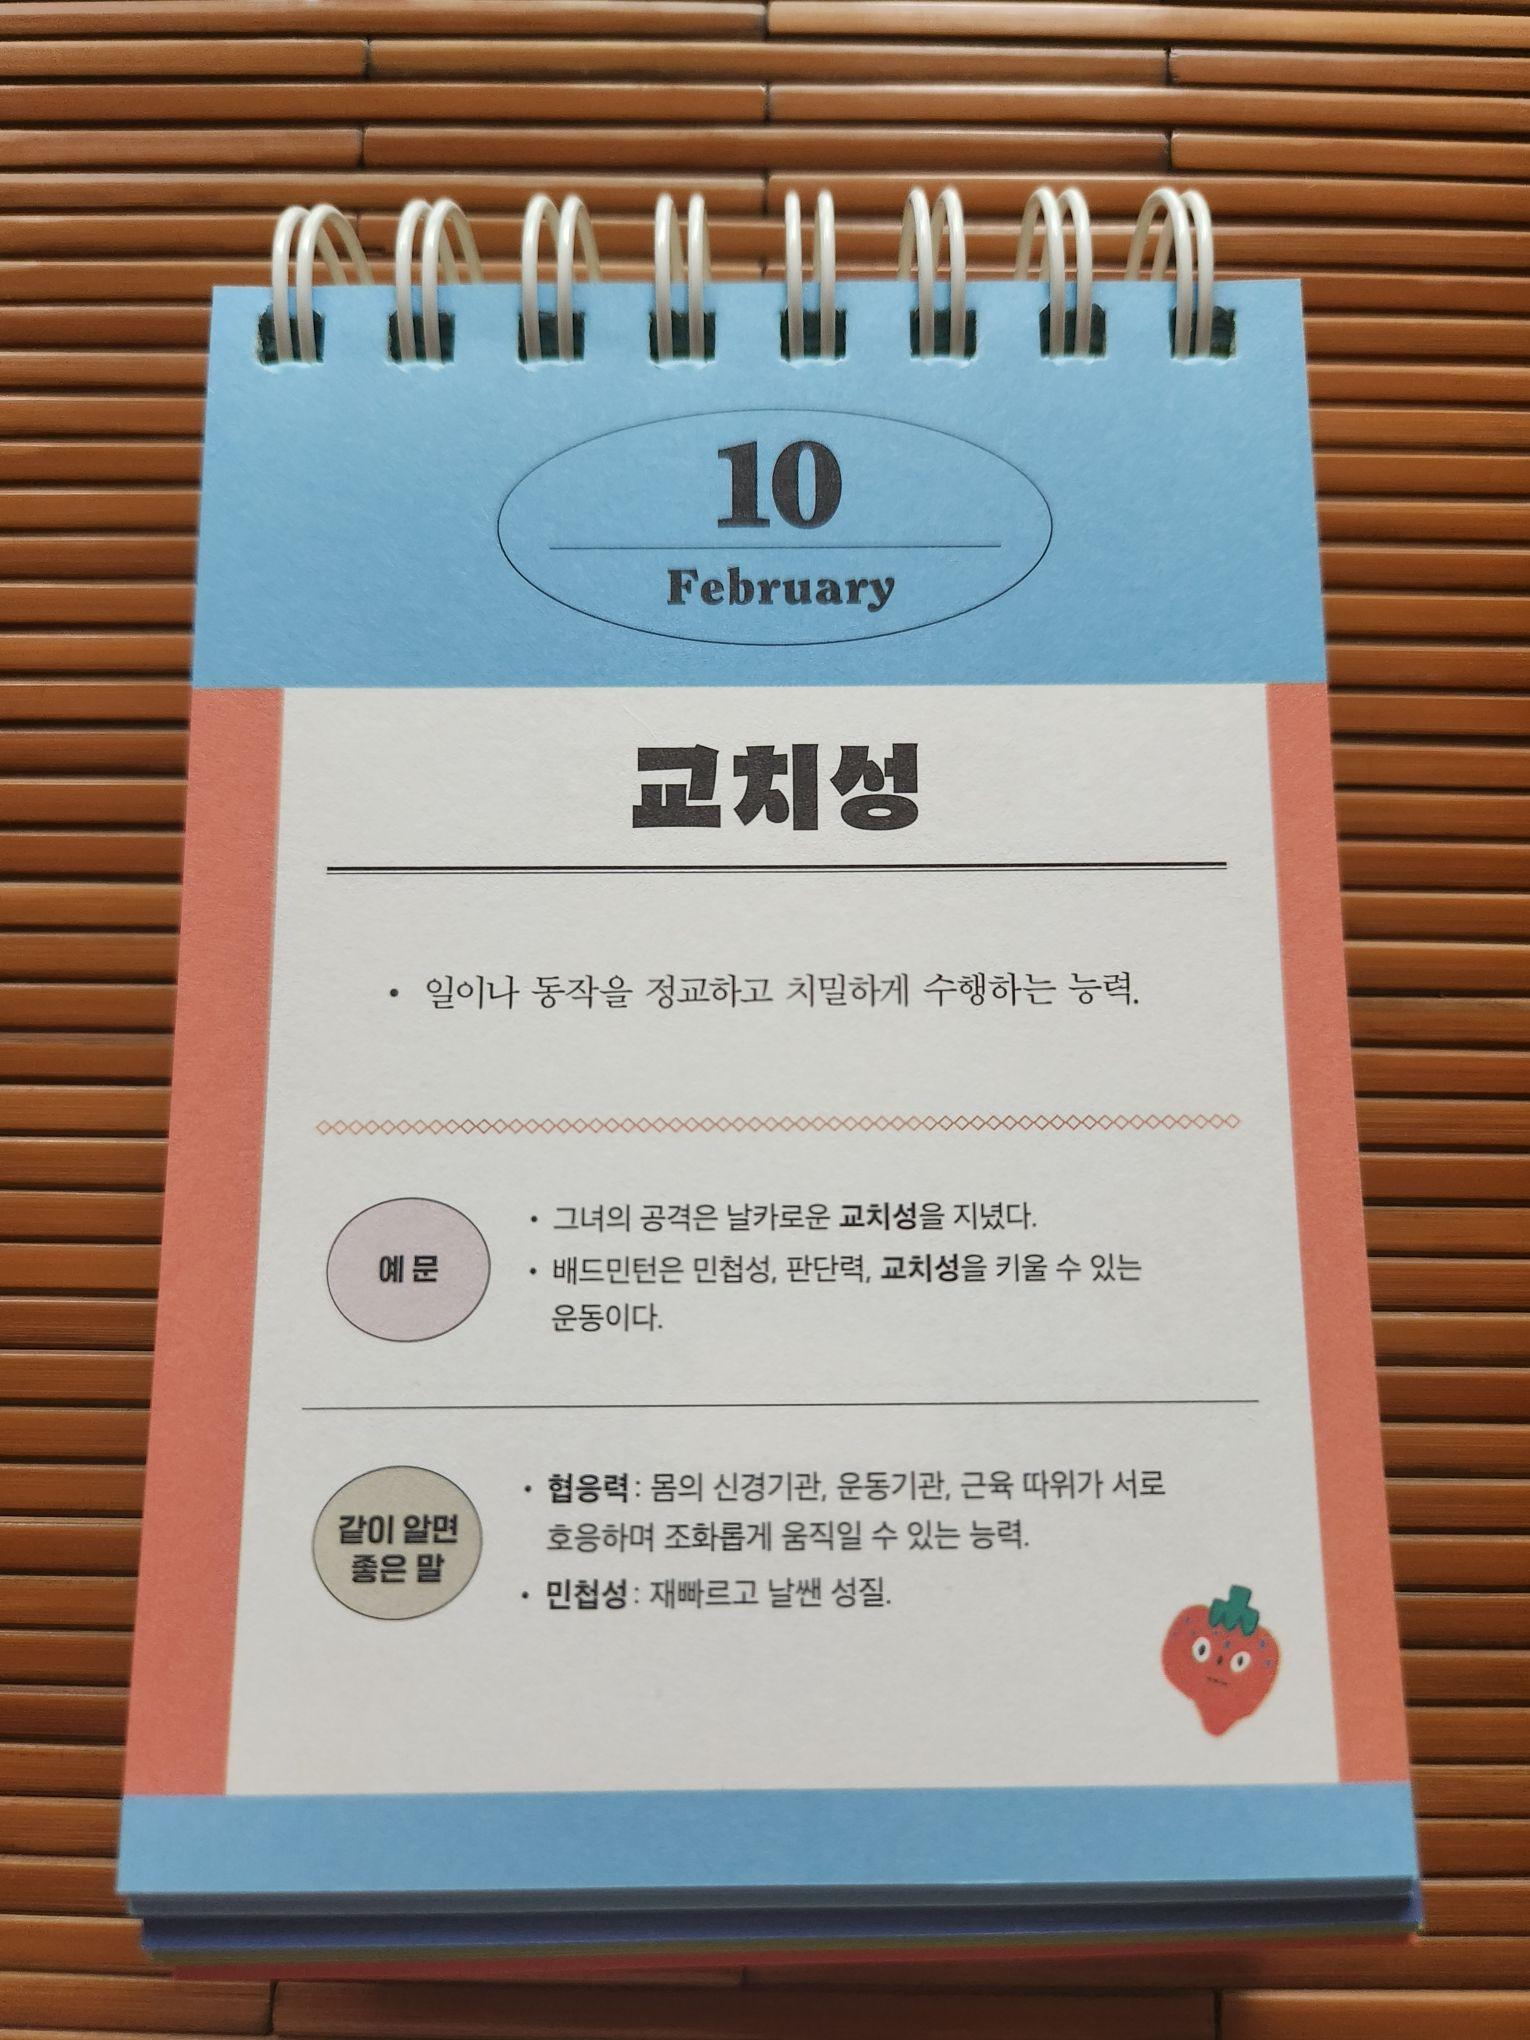 10
February
교치성
• 일이나 동작을 정교하고 치밀하게 수행하는 능력.
예문
• 그녀의 공격은 날카로운 교치성을 지녔다.
• 배드민턴은 민첩성, 판단력, 교치성을 키울 수 있는
운동이다.
같이 알면
좋은 말
• 협응력: 몸의 신경기관, 운동기관, 근육 따위가 서로
호응하며 조화롭게 움직일 수 있는 능력.
• 민첩성: 재빠르고 날쌘 성질.